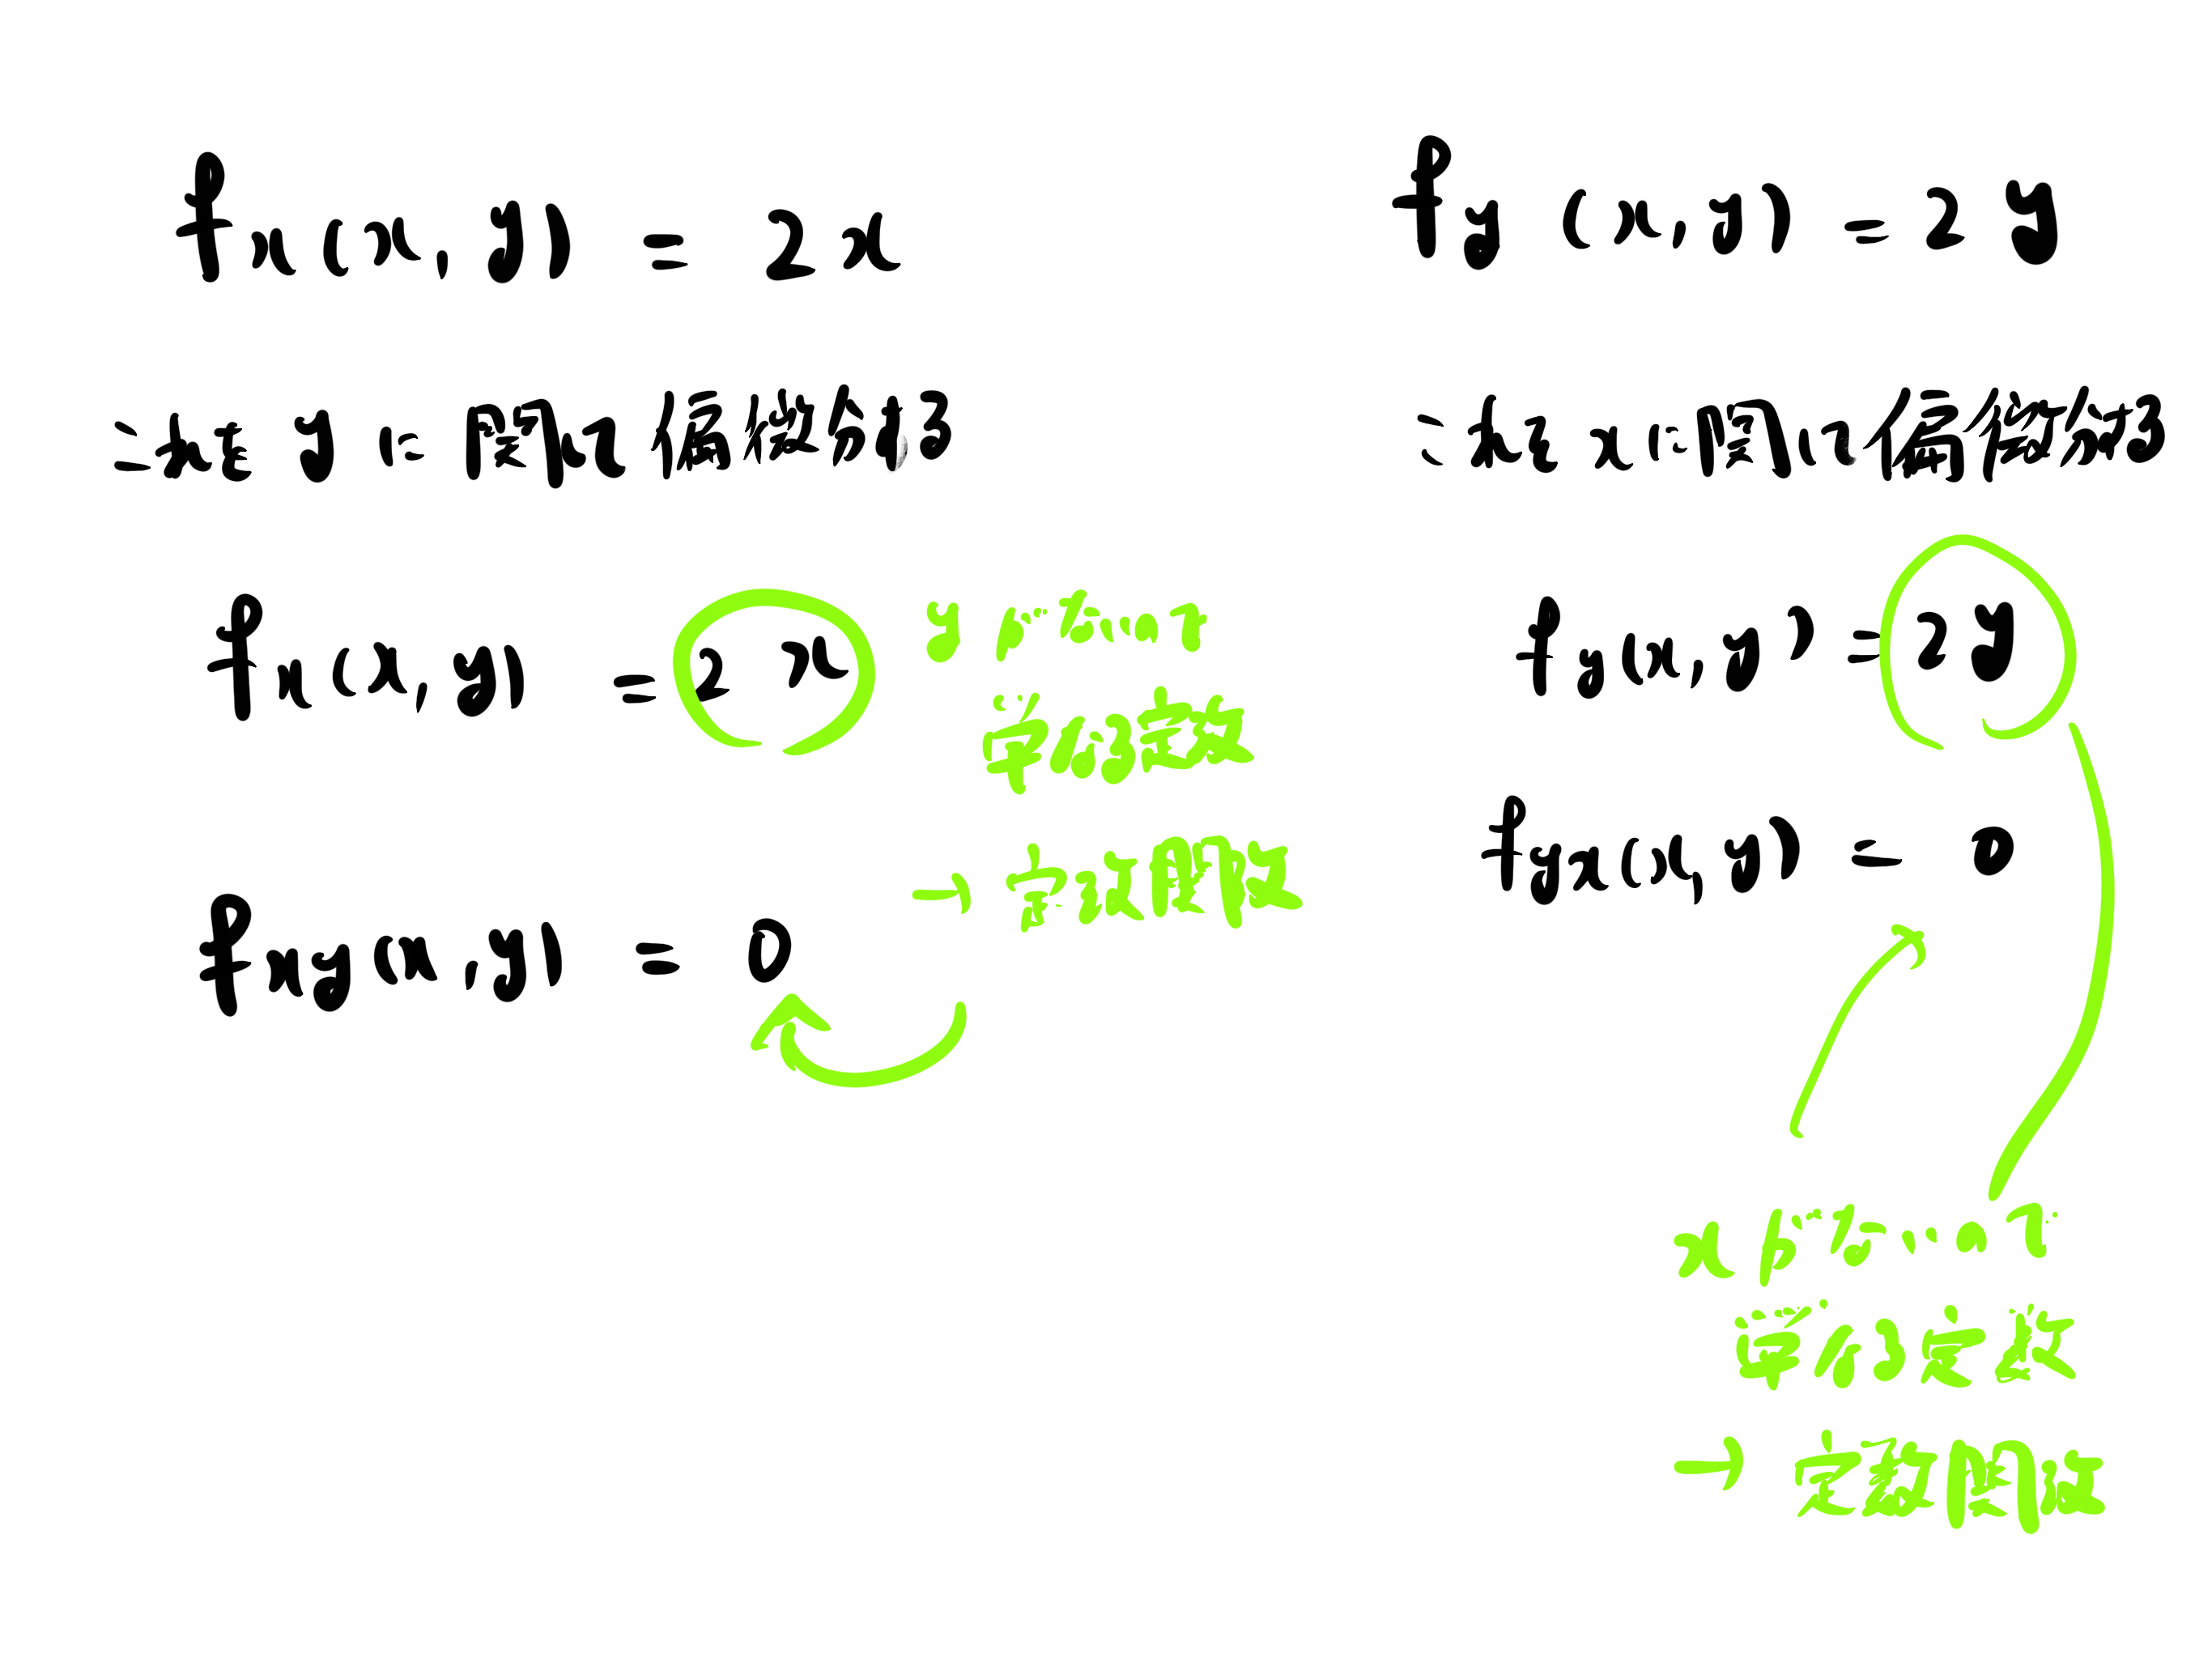 fx(x, y) = 2x
これを y に関して偏微分する
fx(x, y) = 2x
y がないので
単なる定数
→ 定数関数
fxy(x, y) = 0
fy (x, y) = 2y
これを x に関して偏微分する
fy(x, y) = 2y
fyx(x, y) = 0
x がないので
単なる定数
→ 定数関数